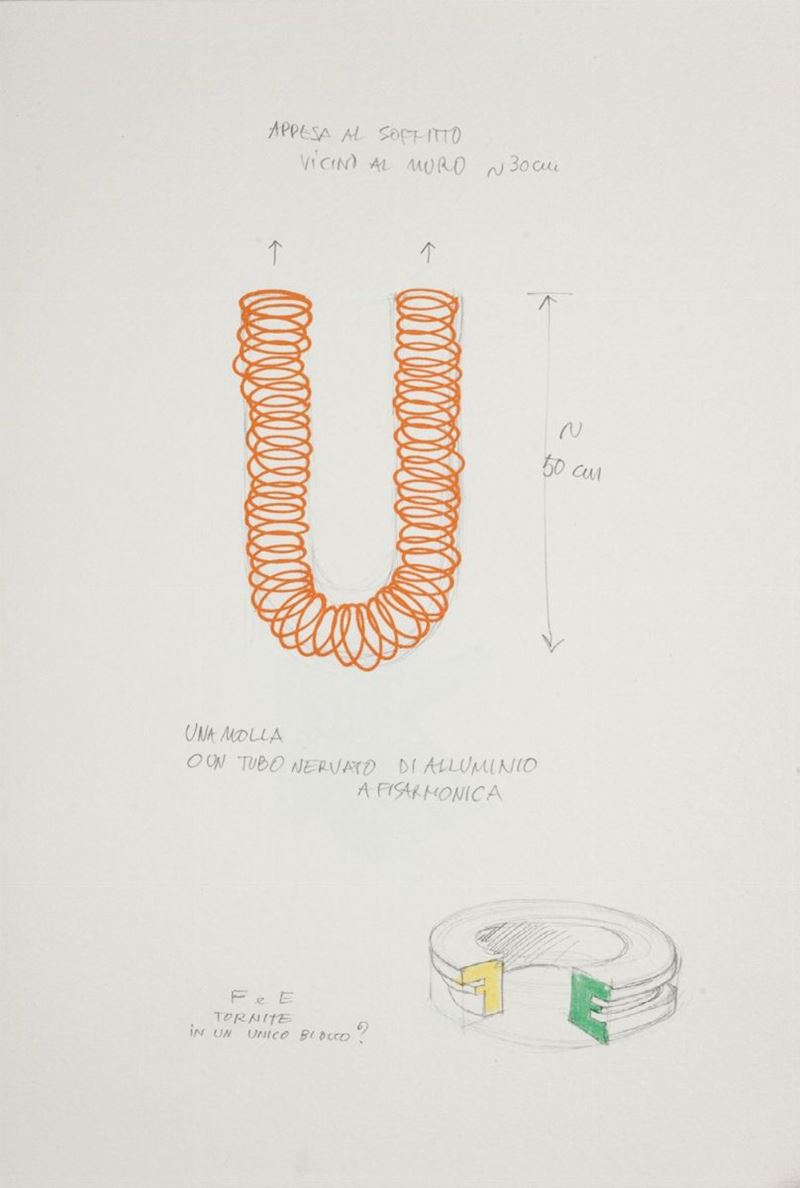 APPESA AL SOFFITTO
VICINO AL MURO ~30cm
~
50 cm
UNA MOLLA
O UN TUBO NERVATO DI ALLUMINIO
A FISARMONICA
F e E
TORNITE
IN UN UNICO BLOCCO?